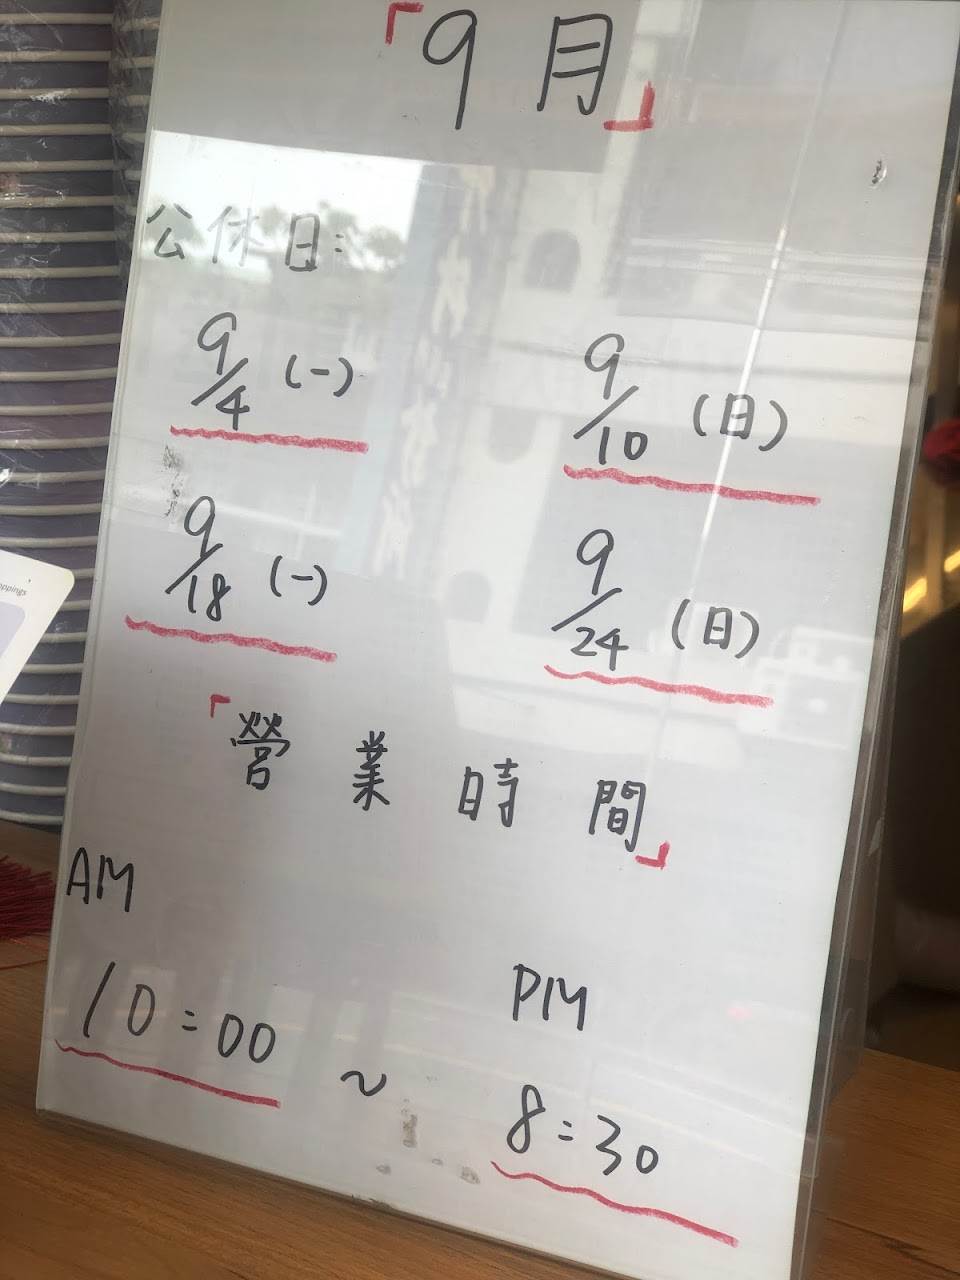 「9月」
公休日:
9/4 (一)
9/10 (日)
9/18 (一)
9/24 (日)
「營業時間」
AM
10:00
~
PM
8:30
oppings